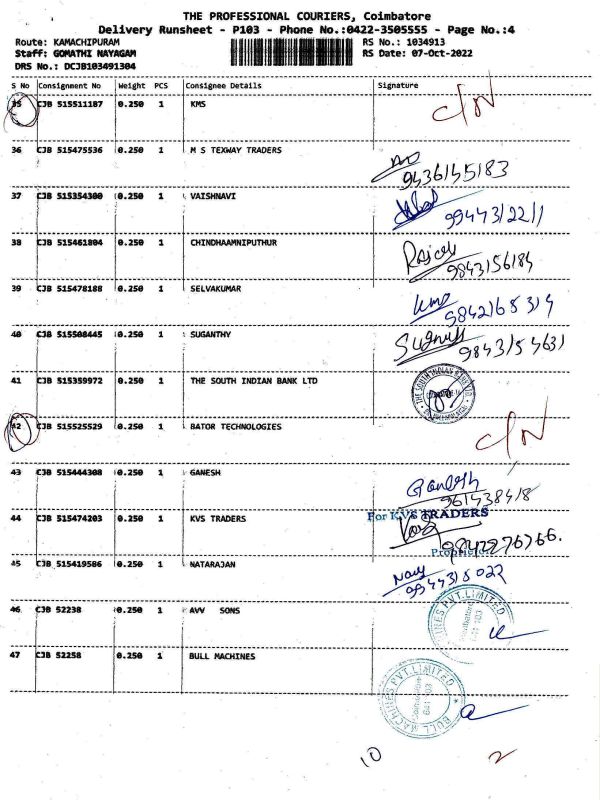 THE PROFESSIONAL COURIERS, Coimbatore
Delivery Runsheet - P103 - Phone No.:0422-3505555 - Page No.:4
Route: KAMACHIPURAM RS No.: 1034913
Staff: GOMATHI NAYAGAM RS Date: 07-Oct-2022
DRS No.: DCJB103491304
S No Consignment No Weight PCS Consignee Details Signature
35 CJB 515511187 0.250 1 KMS C/N
36 CJB 515475536 0.250 1 M S TEXWAY TRADERS
9436145183
37 CJB 515354300 0.250 1 VAISHNAVI
9944312211
38 CJB 515461804 0.250 1 CHINDHAAMNIPUTHUR
9843156184
39 CJB 515478188 0.250 1 SELVAKUMAR
Kmo
9842165314
40 CJB 515508445 0.250 1 SUGANTHY
9843154631
41 CJB 515359972 0.250 1 THE SOUTH INDIAN BANK LTD
THE SOUTH INDIAN BANK LTD.
42 CJB 515525529 0.250 1 BATOR TECHNOLOGIES C/N
43 CJB 515444308 0.250 1 GANESH
Ganesh
961438418
44 CJB 515474203 0.250 1 KVS TRADERS
For KVS TRADERS
9842276766.
45 CJB 515419586 0.250 1 NATARAJAN
9944315022
46 CJB 52238 0.250 1 AVV SONS
PVT. LIMITED
47 CJB 52258 0.250 1 BULL MACHINES
BULL MACHINES PVT. LIMITED
10 2